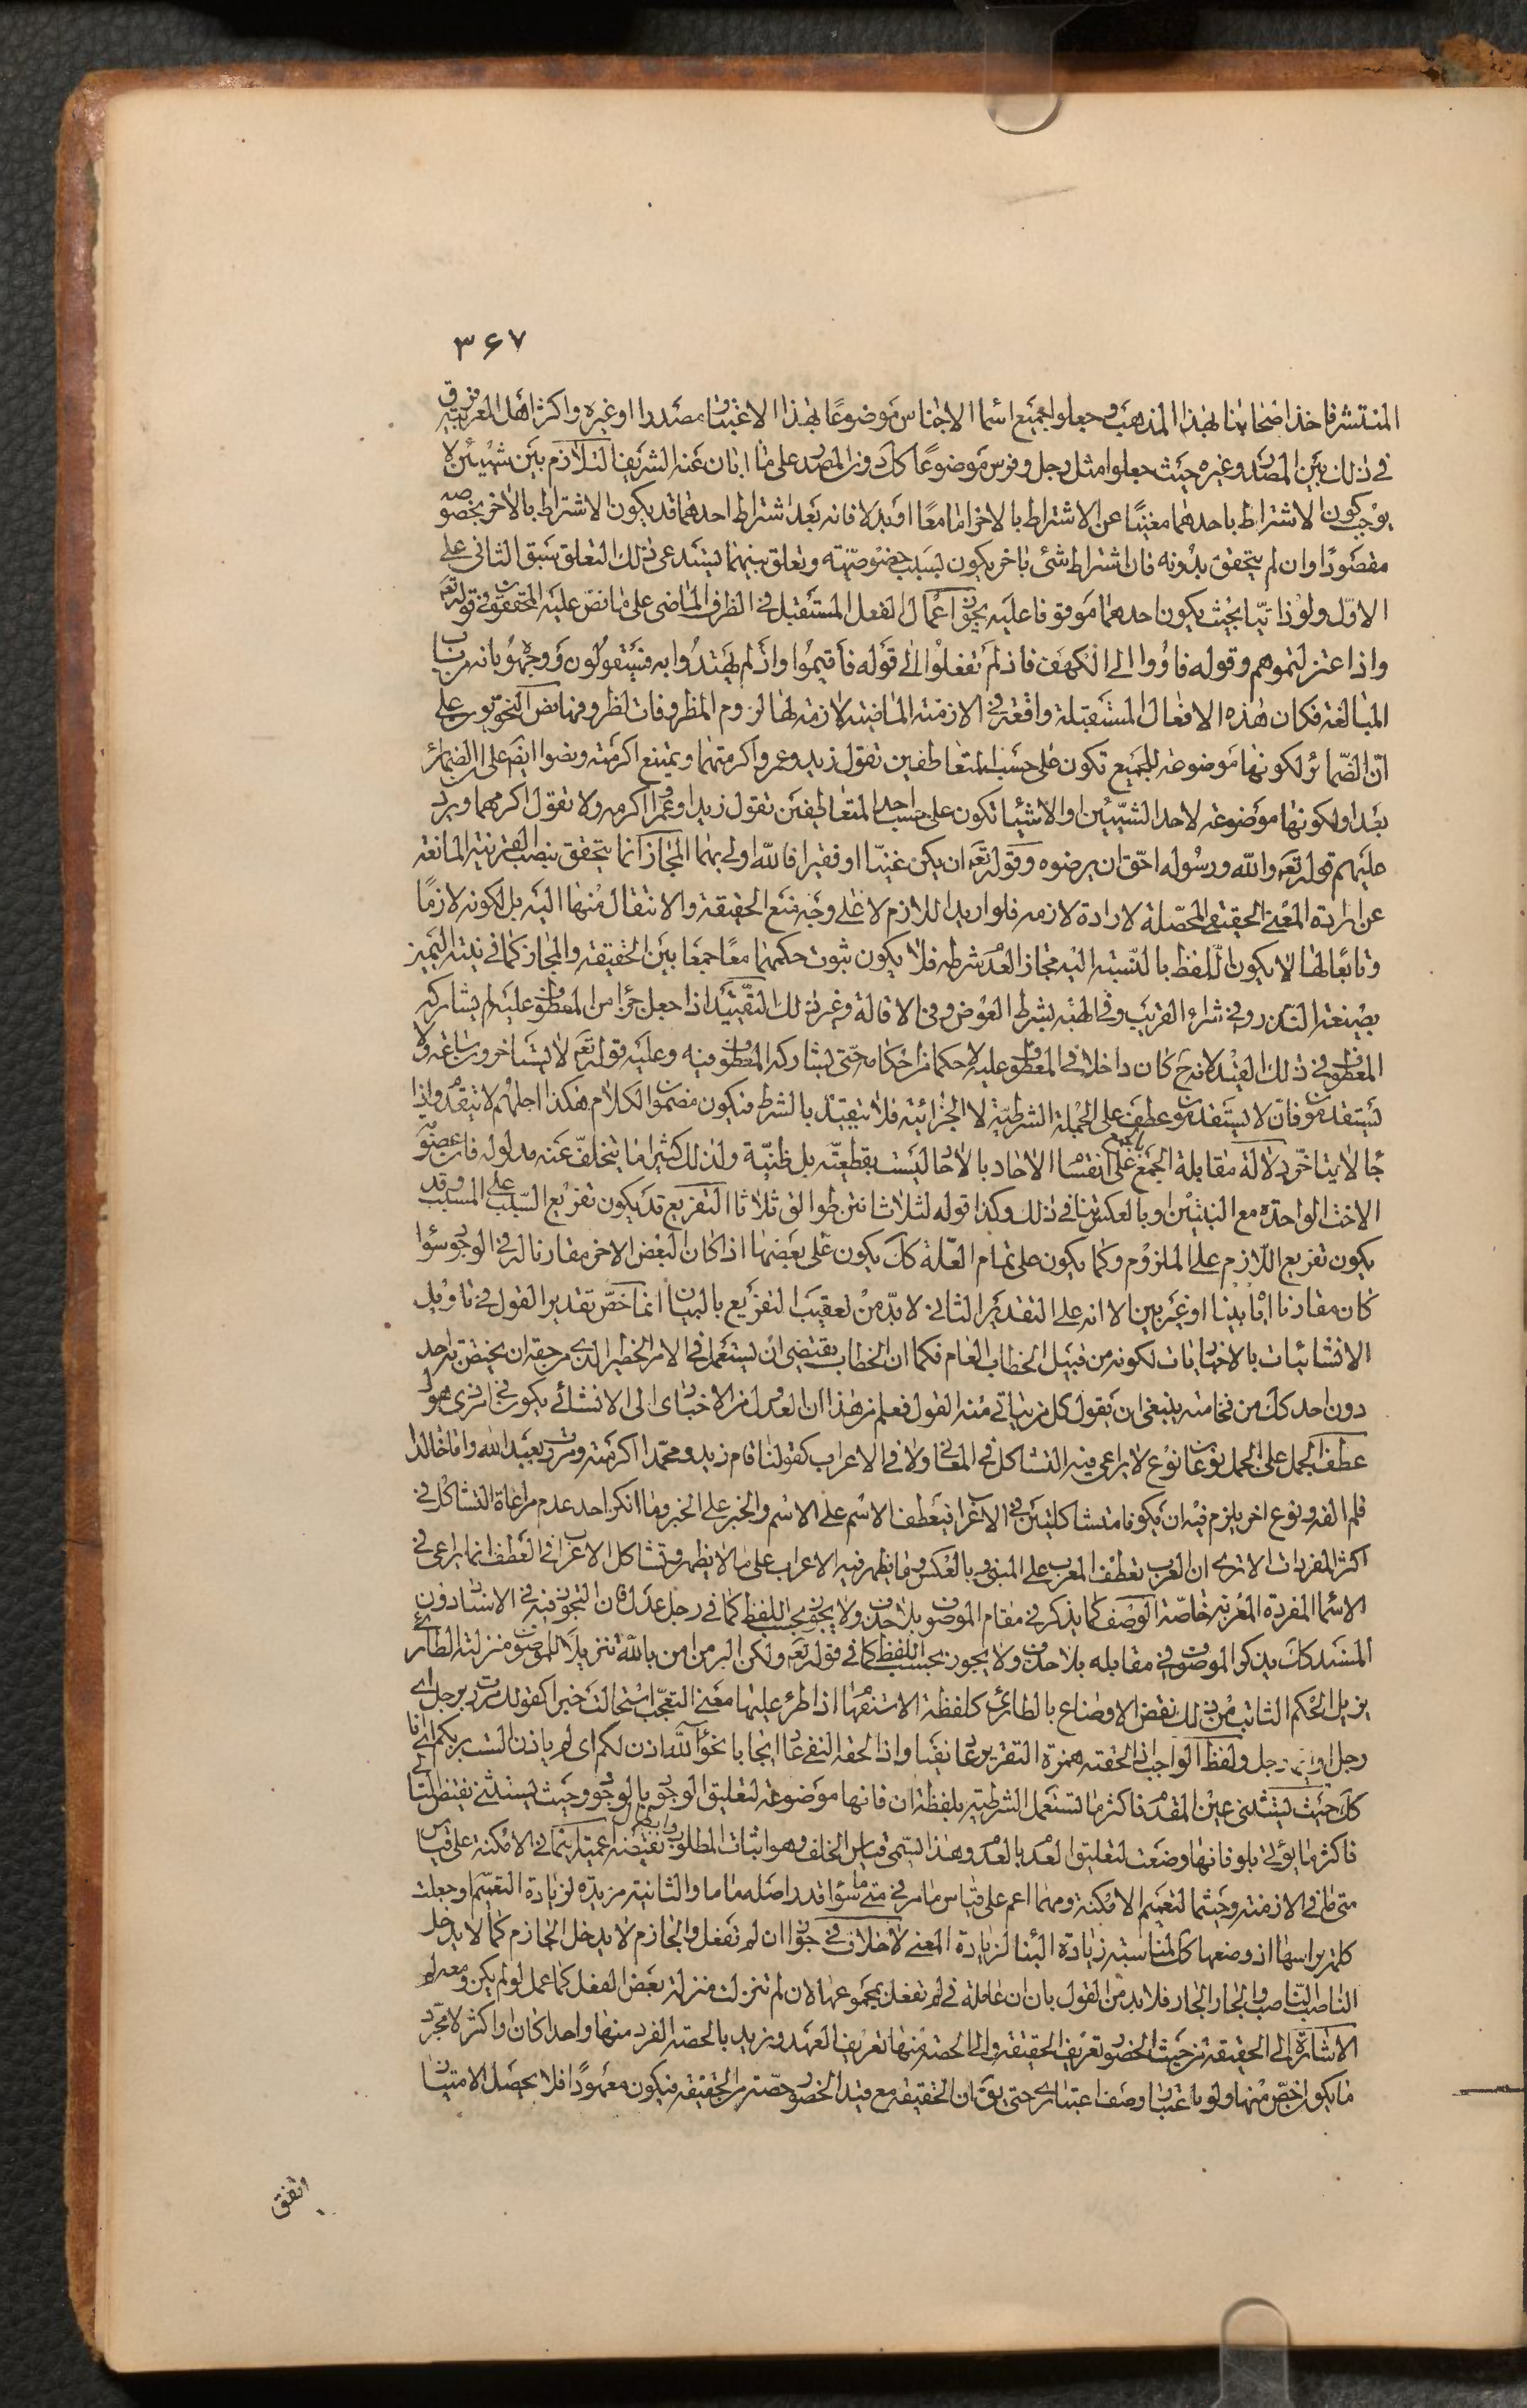 ٣٦٧
المنتشر فاخذ اصحابنا بهذا المذهب و جعلوا جميع اسماء الاجناس موضوعًا بهذا الاعتبار مصدرا او غيره و اكثر اهل العربية فرق
في ذلك بين المصدر و غيره حيث جعلوا مثل رجل و فرس موضوعًا كك دون المصدر على ما ابان عنه الشريف التلازم بين شيئين لا
يوجب كون الاشتراط باحدهما مغنيًا عن الاشتراط بالاخر اما معًا او بدلا فانه بعد اشتراط احدهما قد يكون الاشتراط بالاخر بخصوصه
مقصودًا و ان لم يتحقق بدونه فان اشتراط شئ باخر يكون بسبب خصوصيته و تعلق بينهما يستدعى ذلك التعلق سبق الثانى على
الاوّل و لو ذاتيّا بحيث يكون احدهما موقوفا عليه يجوز اعمال الفعل المستقبل في الظرف الماضى على ما نصّ عليه المحققون في قوله تعم
و اذا عتزلتموهم و قوله فاووا الى الكهف فاذ لم تفعلوا الى قوله فاقيموا و اذ لم يهتدوا به فسيقولون و وجهوه بانه من باب
المبالغة فكان هذه الافعال المستقبلة واقعة في الازمنة الماضية لازمة لها لزوم المظروفات لظروفها نصّ النحويون على
انّ الضمائر لكونها موضوعة للجميع تكون على حسب المتعاطفين تقول زيد و عمرو اكرمتهما و يمتنع اكرمته و نصوا ايضم على ان الضمائر
بعد او لكونها موضوعة لاحد الشيئين او الاشياء تكون على حسب احد المتعاطفين تقول زيدا او عمرًا اكرمه و لا تقول اكرمهما و يرد
عليهم قوله تعم و اللّه و رسوله احقّ ان يرضوه و قوله تعم ان يكن غنيّا او فقيرا فاللّه اولى بهما المجاز انما يتحقق بنصب القرينة المانعة
عن ارادة المعنى الحقيقى المحصّلة لارادة لازمه فلو اريد اللازم لا على وجه منع الحقيقة و الانتقال منها اليه بل لكونه لازمًا
و تابعًا لها لا يكون اللّفظ بالنسبة اليه مجازا لعدم شرطه فلا يكون ثبوت حكمهما معًا جمعًا بين الحقيقة و المجاز كما في نية اليمين
بصيغة النذر و في شراء القريب و في الهبة بشرط العوض و في الاقالة و غير ذلك التقييد اذا جعل جزءًا من المعطوف عليه لم يشاركه
المعطوف في ذلك القيد لانه ح كان داخلا في المعطوف عليه لا حكما من احكامه حتى يشاركه المعطوف فيه و عليه قوله تعم لا يستاخرون ساعة و لا
يستقدمون فانّ لا يستقدمون عطف على الجملة الشرطيّة لا الجزائية فلا يتقيد بالشرط فيكون مضمون الكلام هكذا اجلهم لا يتقدم و اذا
جاء لا يتاخّر دلالة مقابلة الجمع بالجمع على انقسام الاحاد بالاحاد ليست بقطعيّة بل ظنيّة و لذلك كثيرا ما يتخلّف عنه مدلوله فان
الاخت الواحدة مع البنتين و بالعكس ينافي ذلك و كذا قوله لثلاث انتن طوالق ثلاثا التفريع قد يكون تفريع السبب على المسبب و قد
يكون تفريع اللازم على الملزوم و كما يكون على تمام العلّة كك يكون على بعضها اذا كان البعض الاخر مقارنا له في الوجود سواء
كان مقارنا اثباتيا او غير بين الا انه على التقدير الثانى لا بدّ من تعقيب التفريع بالبيان انما خصّ تقدير القول في تاويل
الانشائيات بالاخباريات لكونه من قبيل الخطاب العام فكما ان الخطاب يقتضى ان يستعمل في الامر الخطير الذى من حقه ان يختص به احد
دون احد كك من فخامته ينبغى ان يقول كل من يتاتى منه القول فعلم من هذا ان العدول من الاخبارى الى الانشائى يكون
عطف الجمل على الجمل نوعان نوع لا يراعى فيه التشاكل في المعانى و لا في الاعراب كقولنا قام زيد و محمّدا اكرمته و مررت بعبد الله و اما خالدا
فلم القه و نوع اخر يلزم فيه ان يكونا متشاكلتين في الاعراب فيعطف الاسم على الاسم و الخبر على الخبر و ما انكر احد عدم مراعاة التشاكل في
اكثر المفردات الا ترى ان العرب تعطف المعرب على المبنى و بالعكس و ما يظهر فيه الاعراب على ما لا يظهر و تشاكل الاعراب في العطف انما يراعى في
الاسماء المفردة المعربة خاصّة الوصف كما يذكر في مقام الموصوف بلا حذف و لا يجوز بحسب اللفظ كما في رجل عدل فان التجوز فيه في الاسناد دون
المسند كك يذكر الموصوف في مقابله بلا حذف و لا يجوز بحسب اللفظ كما في قوله تعم و لكن البرّ من امن باللّه تنزيلا للموصوف منزلته الطارى
يزيل الحكم الثابت من ذلك نقض الاوضاع بالطارى كلفظة الاستفهام اذا طرء عليها معنى التعجّب استحالت خبرا كقولك مررت برجل اى
رجل و ايّما رجل و لفظ الواجب اذا لحقته همزة التقرير عاد نفيا و اذا لحقه النفى عاد ايجابا نحو آللّه اذن لكم اى لم ياذن الست بربكم اى انا
كك حيث يستثنى عين المقدم فاكثر ما تستعمل الشرطية بلفظة ان فانها موضوعة لتعليق الوجود بالوجود و حيث يستثنى نقيض التالى
فاكثر ما يؤتى بلو فانها وضعت لتعليق العدم بالعدم و هذا يسمّى قياس الخلف و هو اثبات المطلوب بابطال نقيضه اعميّة اينما في الامكنة على قياس
متى ما في الازمنة و حيثما لتعميم الامكنة و مهما اعم على قياس ما مر في متى ما سواء قدر اصله ماما و الثانية مزيدة لزيادة التعميم او جعلت
كلمة براسها اذ وضعها كك لمناسبة زيادة البناء لزيادة المعنى لا خلاف في جواز ان لم تفعل و الجازم لا يدخل الجازم كما لا يدخل
الناصب الناصب و الجار الجار فلا بد من القول بان ان عاملة في لم تفعل بمجموعها لان لم تنزلت منزلة بعض الفعل كما عمل لو لم يكن و معه لم
الاشارة الى الحقيقة من حيث الحضور تعريف الحقيقة و الى الحصة منها تعريف العهد و نريد بالحصة الفرد منها واحدا كان او اكثر لا مجرّد
ما يكون اخصّ منها و لو باعتبار وصف اعتبارى حتى يق ان الحقيقة مع قيد الحضور حصّة من الحقيقة فيكون معهودًا فلا يحصل الامتياز
اتفق